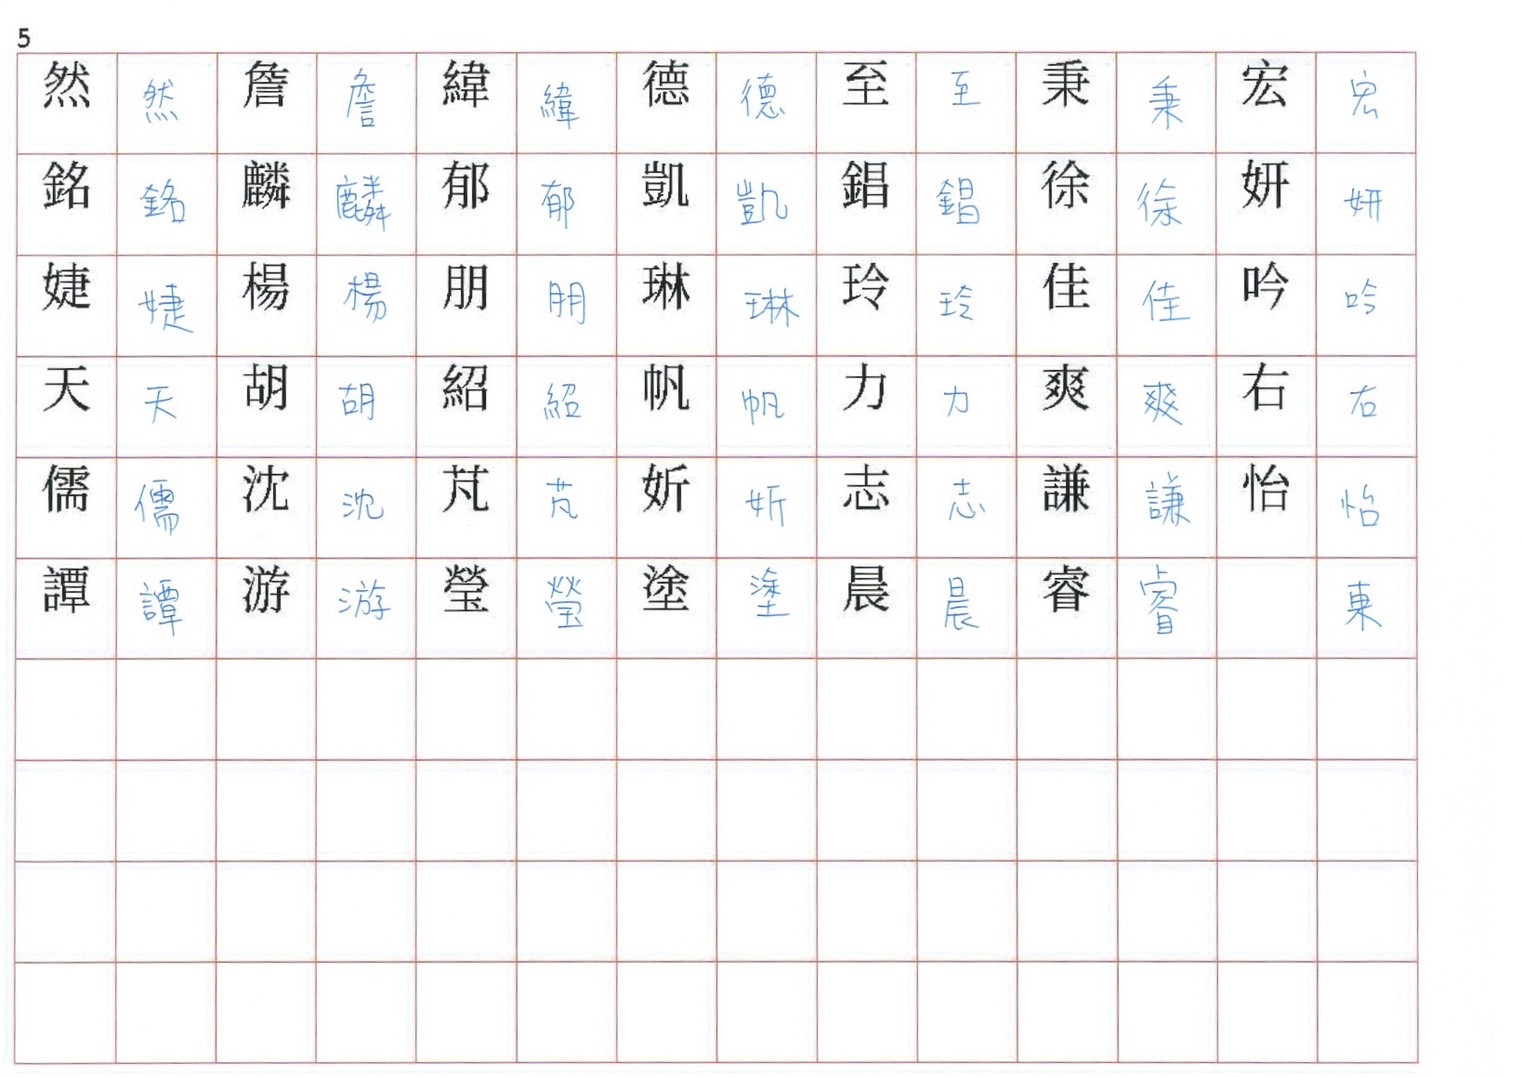 5
然 然 詹 詹 緯 緯 德 德 至 至 秉 秉 宏 宏
銘 銘 麟 麟 郁 郁 凱 凱 錩 錩 徐 徐 妍 妍
婕 婕 楊 楊 朋 朋 琳 琳 玲 玲 佳 佳 吟 吟
天 天 胡 胡 紹 紹 帆 帆 力 力 爽 爽 右 右
儒 儒 沈 沈 芃 芃 妡 妡 志 志 謙 謙 怡 怡
譚 譚 游 游 瑩 瑩 塗 塗 晨 晨 睿 睿 東